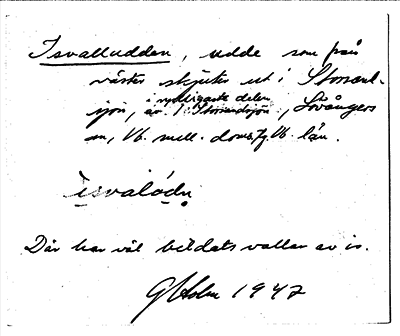 Isvalludden, udde som från
väster skjuter ut i Storsand-
sjön, i sydligaste delen av Storsandsjön, Lövångers
sn, Vb. mell. doms. Vb. län.
isvalódn
Där har väl bildats vallar av is.
G Holm 1947